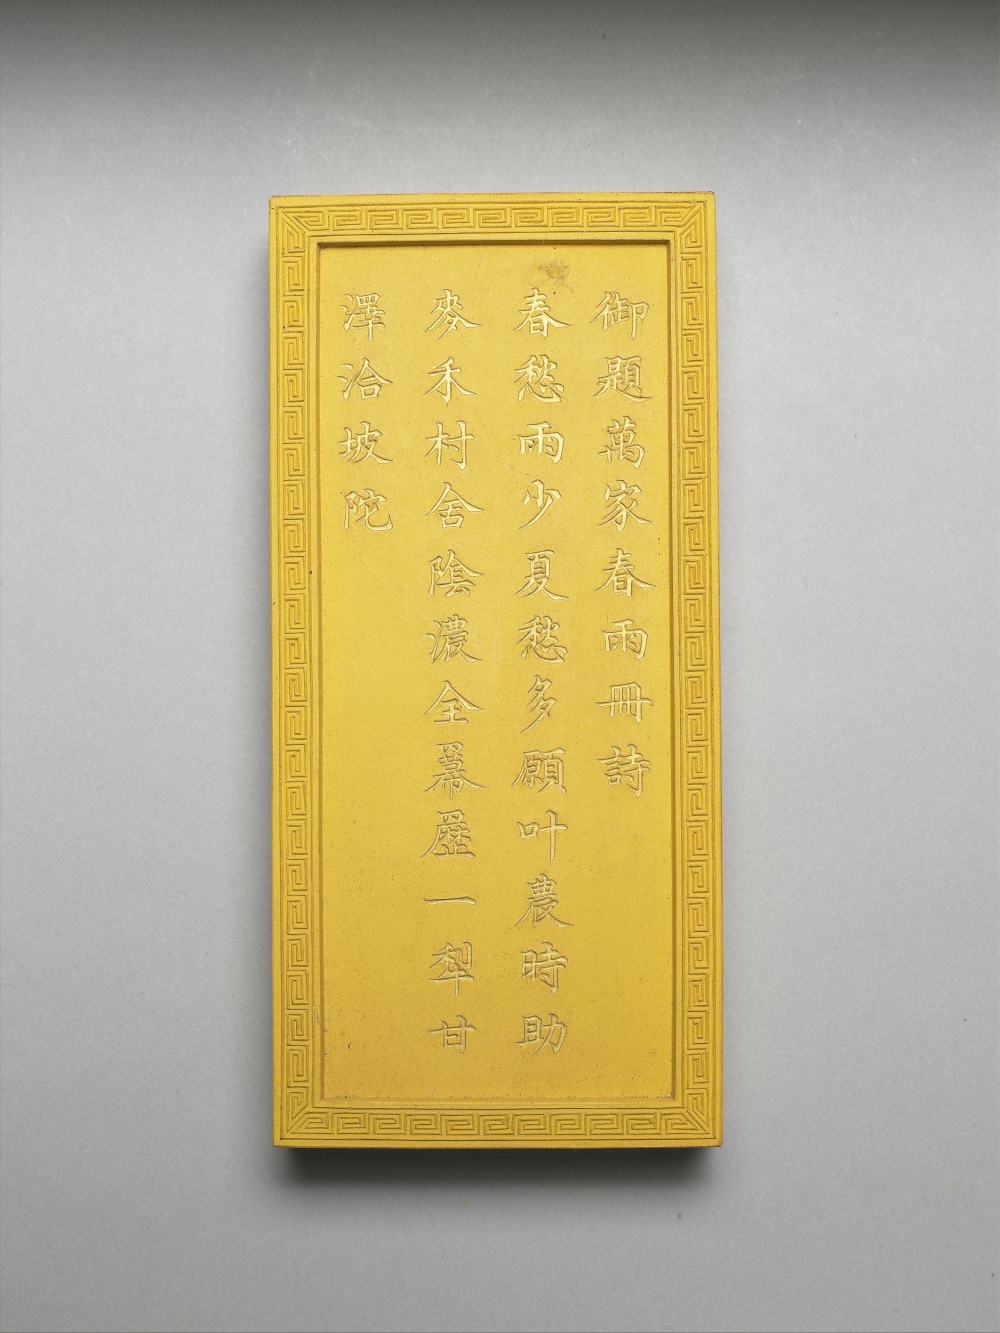 御題萬家春雨冊詩
春愁雨少夏愁多願叶農時助
麥禾村舍陰濃全冪歷一犁甘
澤洽坡陀